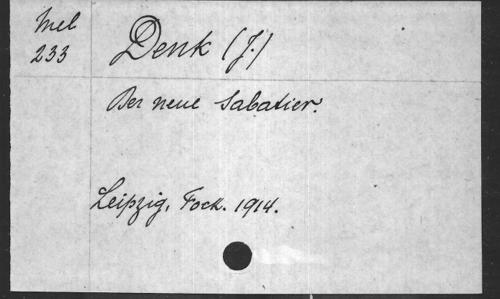 Mel
233
Denk (J.)
Der neue Sabatier.
Leipzig, Fock. 1914.